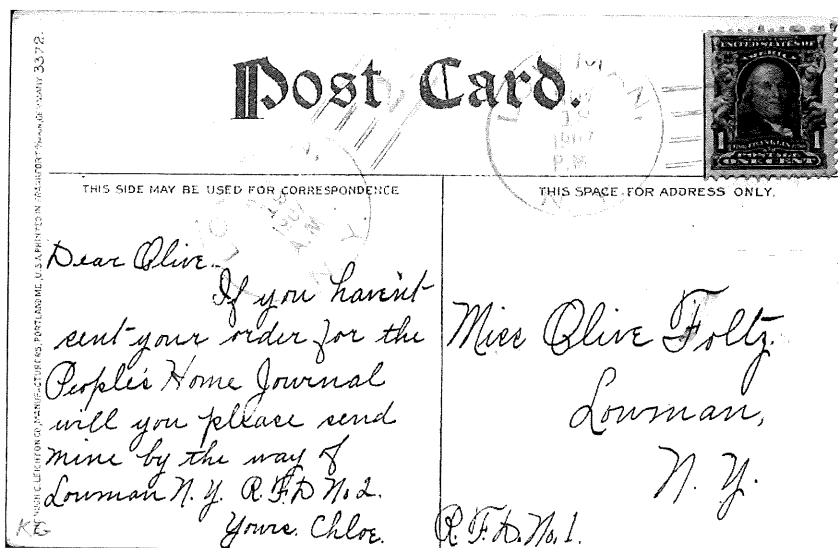 Post Card.
UNITED STATES OF
AMERICA
1 1
FRANKLIN
POSTAGE
ONE CENT
LOWMAN
N. Y.
THIS SIDE MAY BE USED FOR CORRESPONDENCE
THIS SPACE FOR ADDRESS ONLY.
Dear Olive.
If you haven't
sent your order for the
People's Home Journal
will you please send
mine by the way of
Lowman N. Y. R. F. D No 2.
Yours. Chloe.
Miss Olive Foltz
Lowman,
N. Y.
R. F. D. No. 1.
HUGH C. LEIGHTON CO., MANUFACTURERS, PORTLAND, ME., U.S.A. PRINTED IN FRANKFORT, GERMANY 3372.
KG